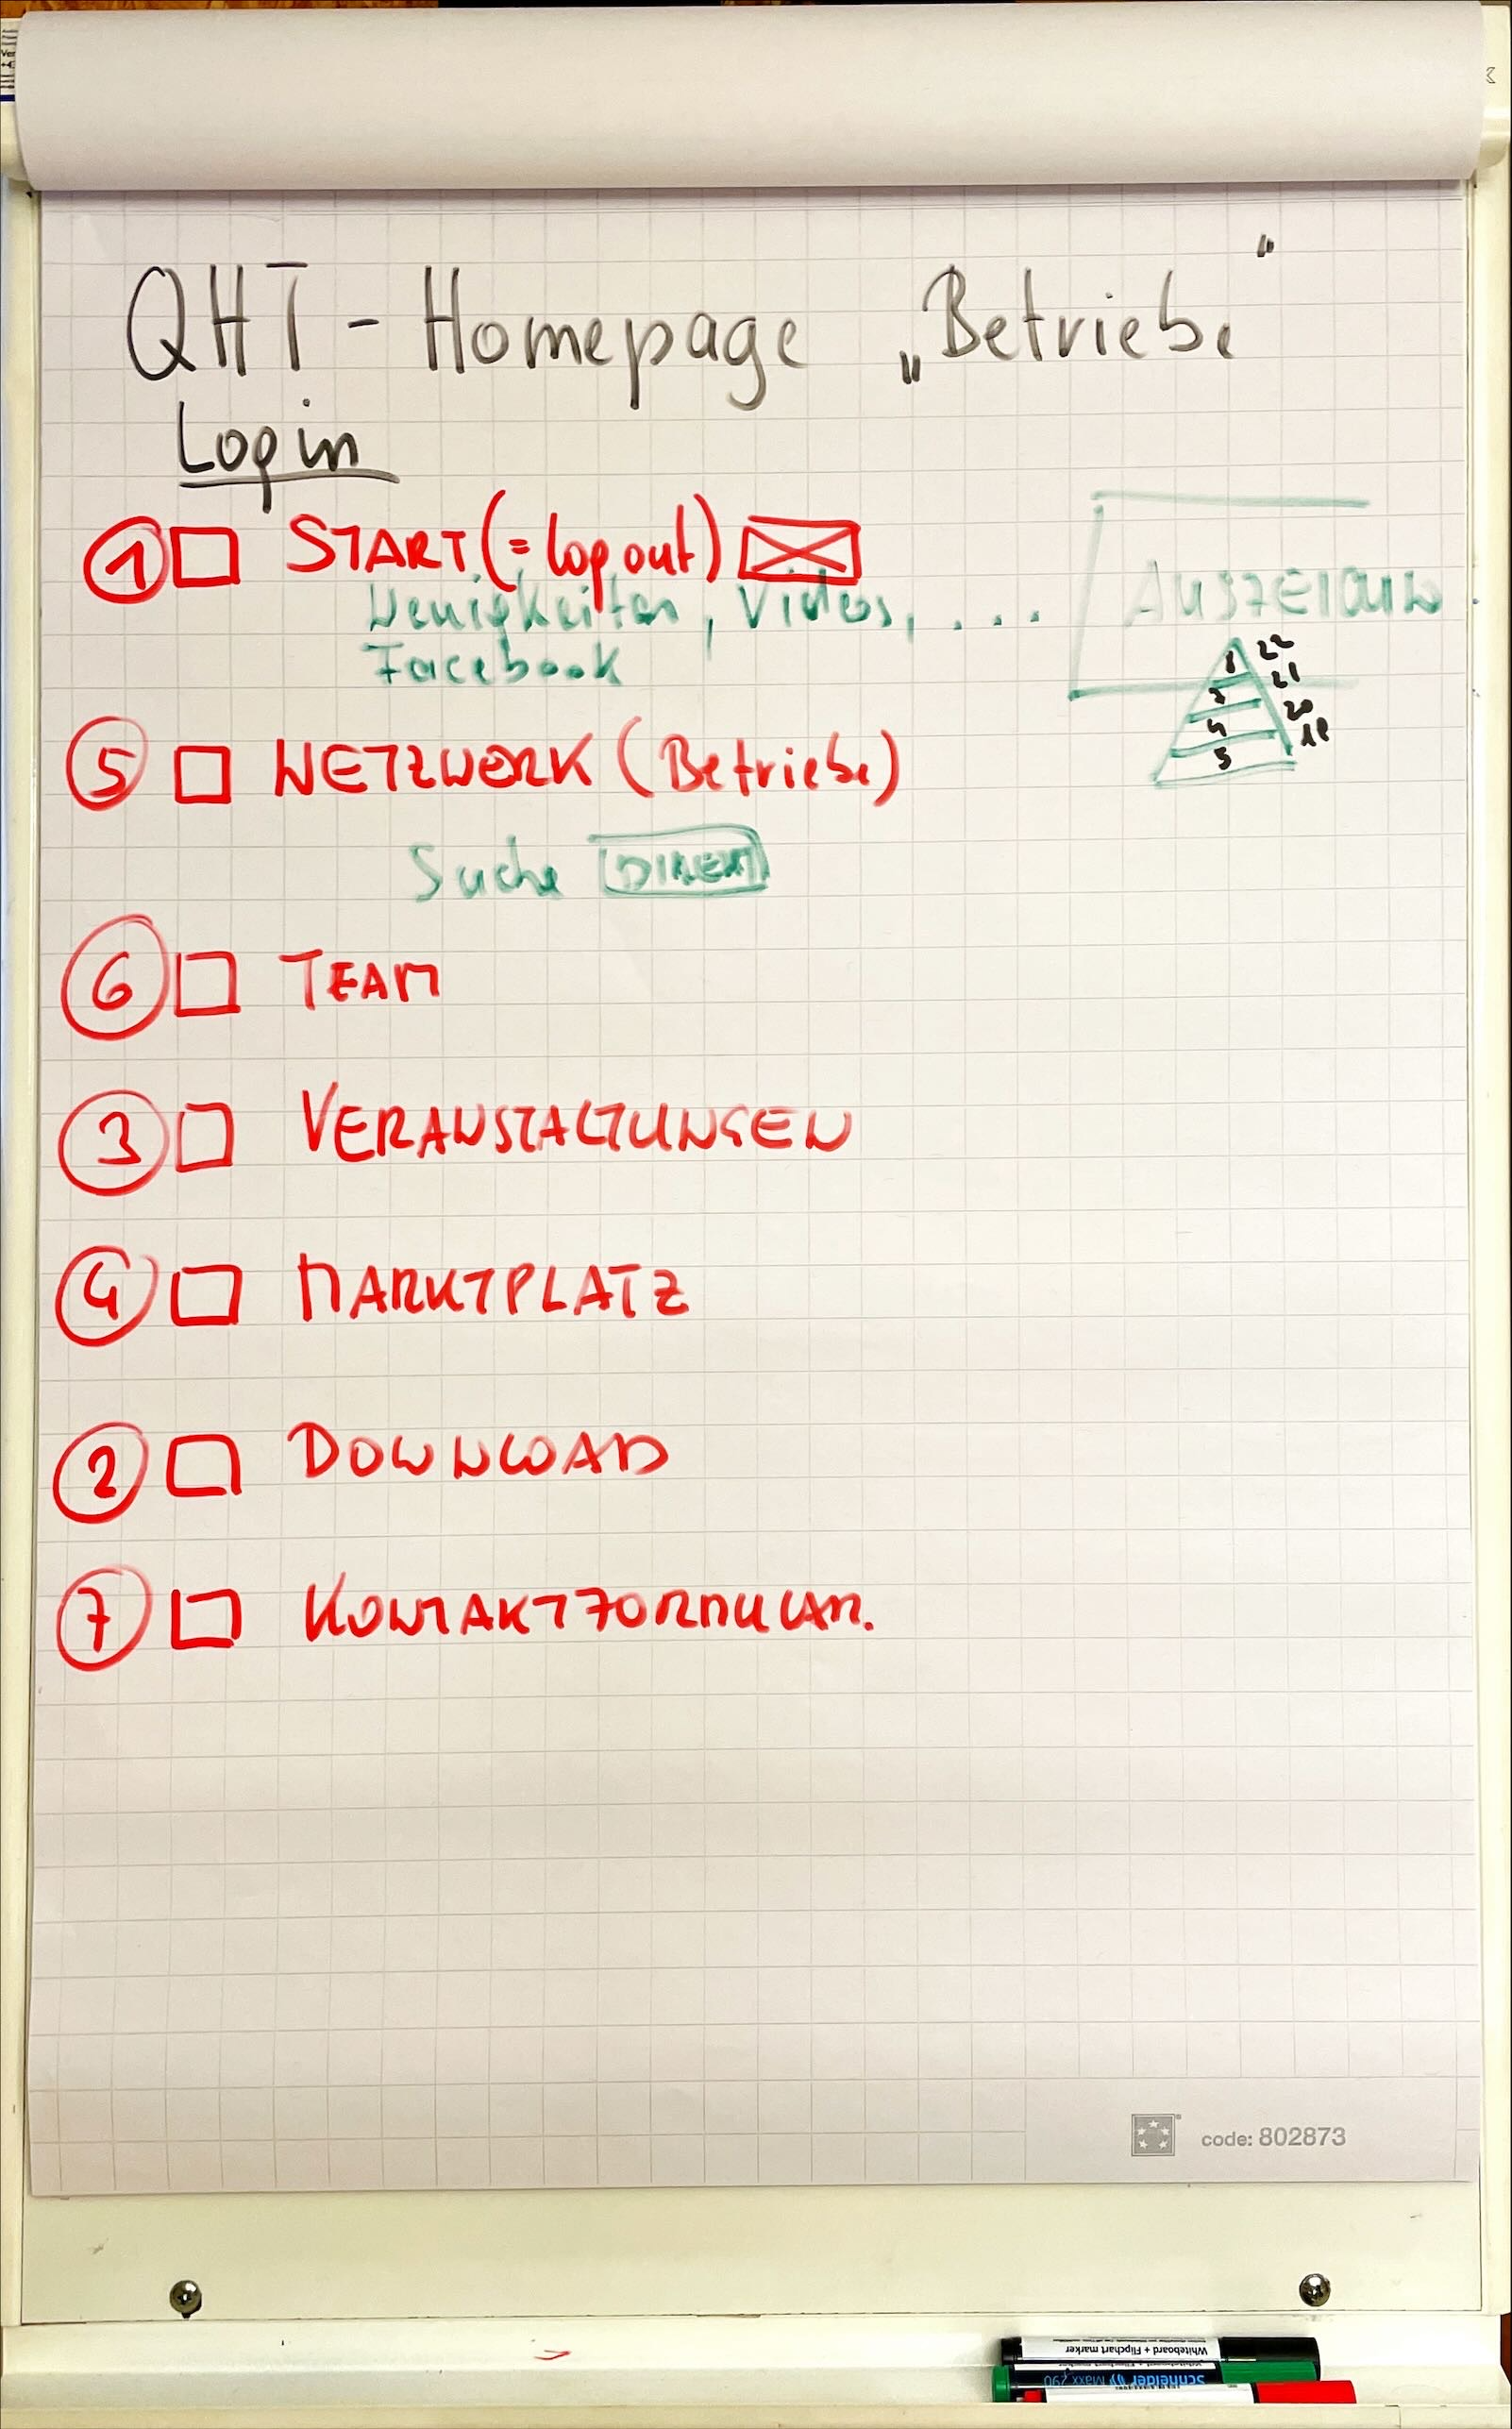 QHT - Homepage „Betriebe"
Login
1 START (= logout)
Neuigkeiten, Videos, ....
Facebook
AUSZEICHN
1 22
2 21
4 20
5
5 NETZWERK (Betriebe)
Suche DIREKT
6 TEAM
3 VERANSTALTUNGEN
4 MARKTPLATZ
2 DOWNLOAD
7 KONTAKTFORMULAR.
code: 802873
Whiteboard + Flipchart marker
Schneider Maxx 290